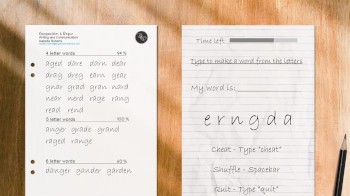 4 letter words 94%
aged dare darn dear
drag drog earn gear
gnar grad gran nard
near nerd rage rang
read rend
5 letter words 100%
anger grade grand
raged range
6 letter words 60%
danger gander garden
Time left
Type to make a word from the letters
My word is:
e r n g d a
Cheat - Type "cheat"
Shuffle - Spacebar
Quit - Type "quit"